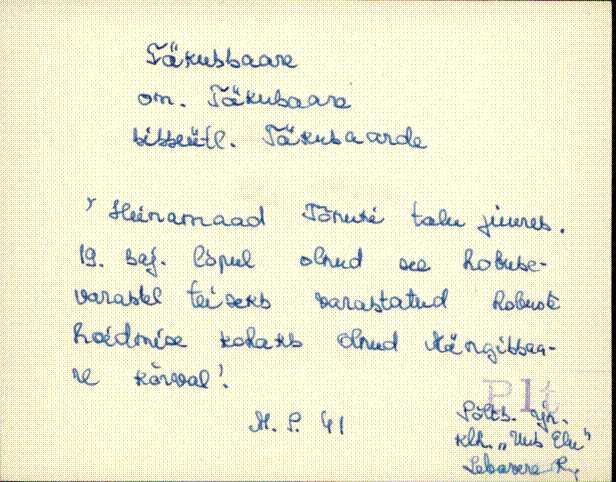 Täkusbaare
om. Täkubaare
sissеütl. Täkubaarde
Heinamaad Tõnuse talu juures.
19. saj. lõpul olnud see hobuse-
varastel teiseks varastatud hobuste
hoidmise kohaks olnud Mängissaa-
re kõrval.
M. P. 41
Plt
Põlts. jn.
klh. „Uus Elu"
Lebavere R.